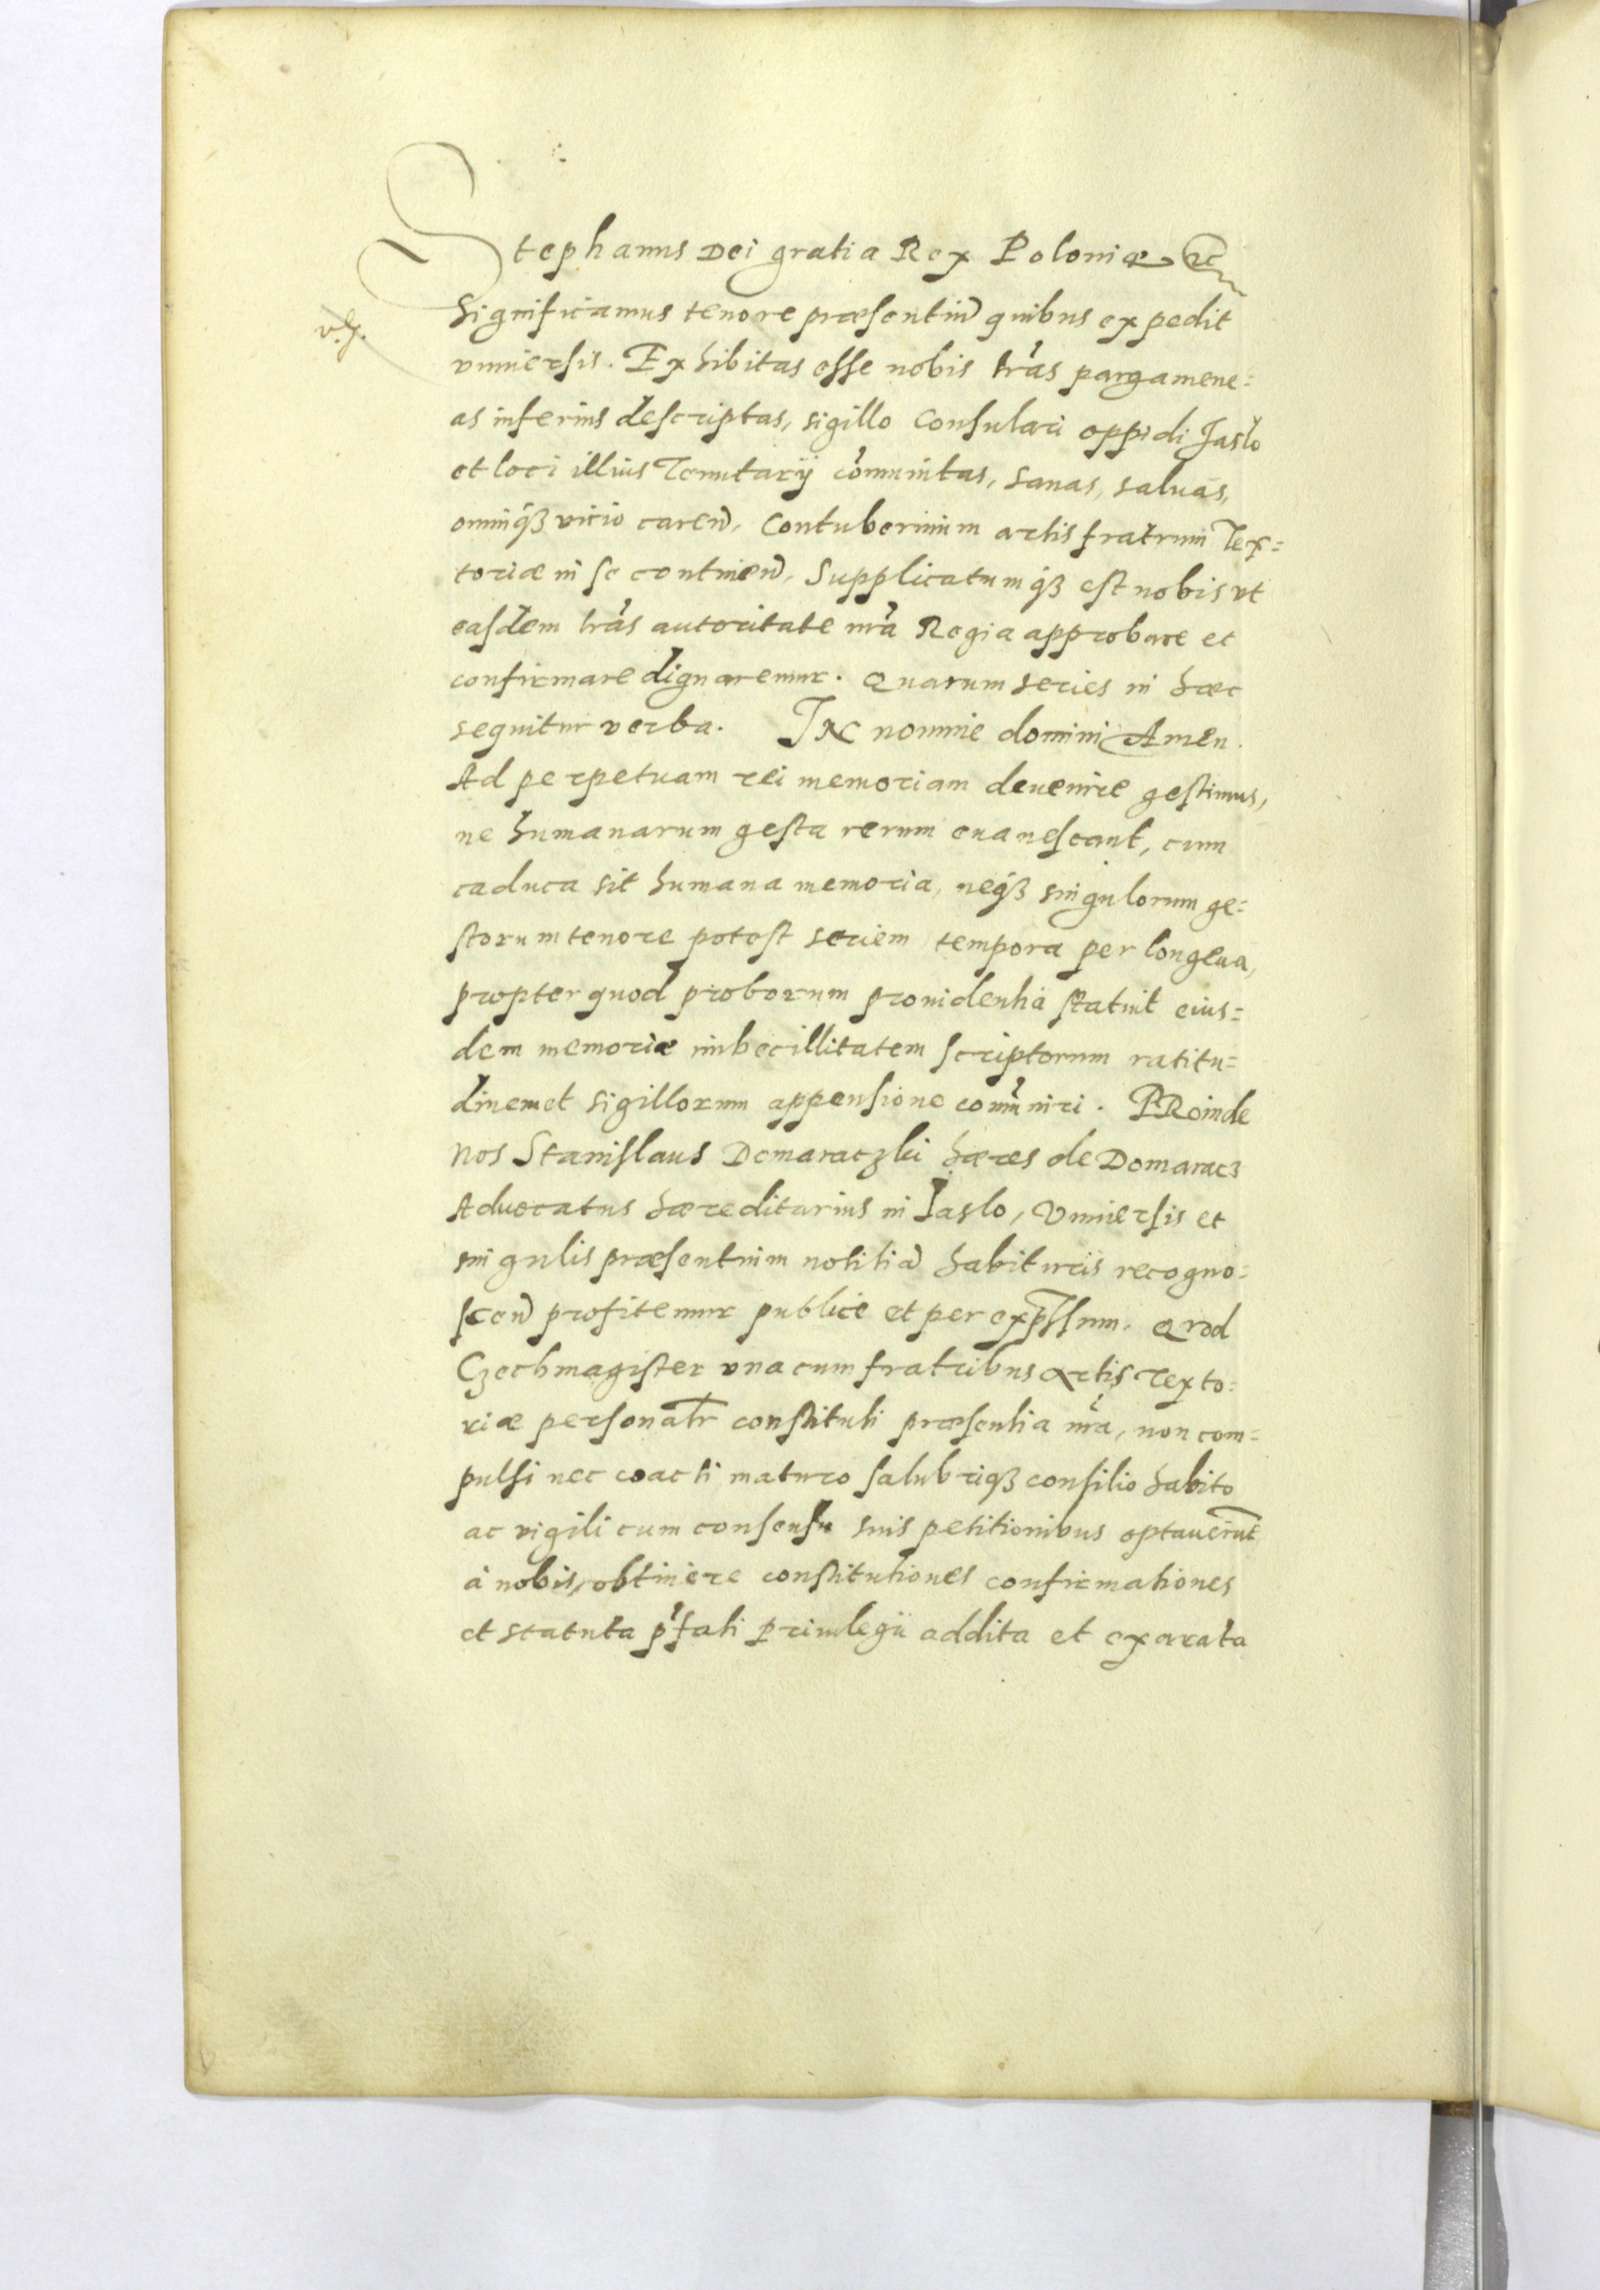 Stephanus Dei gratia Rex Poloniæ etc
Significamus tenore præsentiũ quibus expedit
vniuersis. Exhibitas esse nobis lr̃as pargamene=
as inferius descriptas, sigillo Consulari oppidi Jaslo
et loci illius Tenutarij com̃unitas, sanas, saluas,
omniq₃ vicio careñ, Contubernium artis fratrum Tex=
toriæ in se continen̄, Supplicatumq₃ est nobis vt
easdem lr̃as autoritate nr̃a Regia approbare et
confirmare dignaremur. Quarum series in hæc
sequitur verba. IN nomine domini Amen.
Ad perpetuam rei memoriam deuenire gestimus,
ne humanarum gesta rerum euanescant, cum
caduca sit humana memoria, neq₃ singulorum ge=
storum tenore potest seriem tempora per longeua,
propter quod proborum prouidentia statuit eius=
dem memoriæ imbecillitatem scriptorum ratitu=
dinem et sigillorum appensione com̃uniri. PRoinde
Nos Stanislaus Domaraczki hæres de Domaracz
Aduocatus hæreditarius in Jaslo, Vniuersis et
singulis præsentium notitiã habituris recogno=
scen̄ profitemur publice et per exp̃ssum. Quod
Czechmagister vna cum fratribus Artis Texto=
riæ personalr̃ constituti præsentia nr̃a, non com=
pulsi nec coacti maturo salubriq₃ consilio habito
ac vigili cum consensu suis petitionibus optauerũt
à nobis, obtinere constitutiones confirmationes
et statuta p̃fati priuilegii addita et exarata